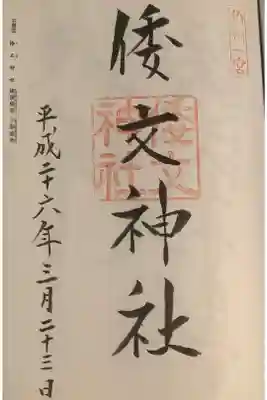 倭文神社
倭文
神社
平成二十六年三月二十三日